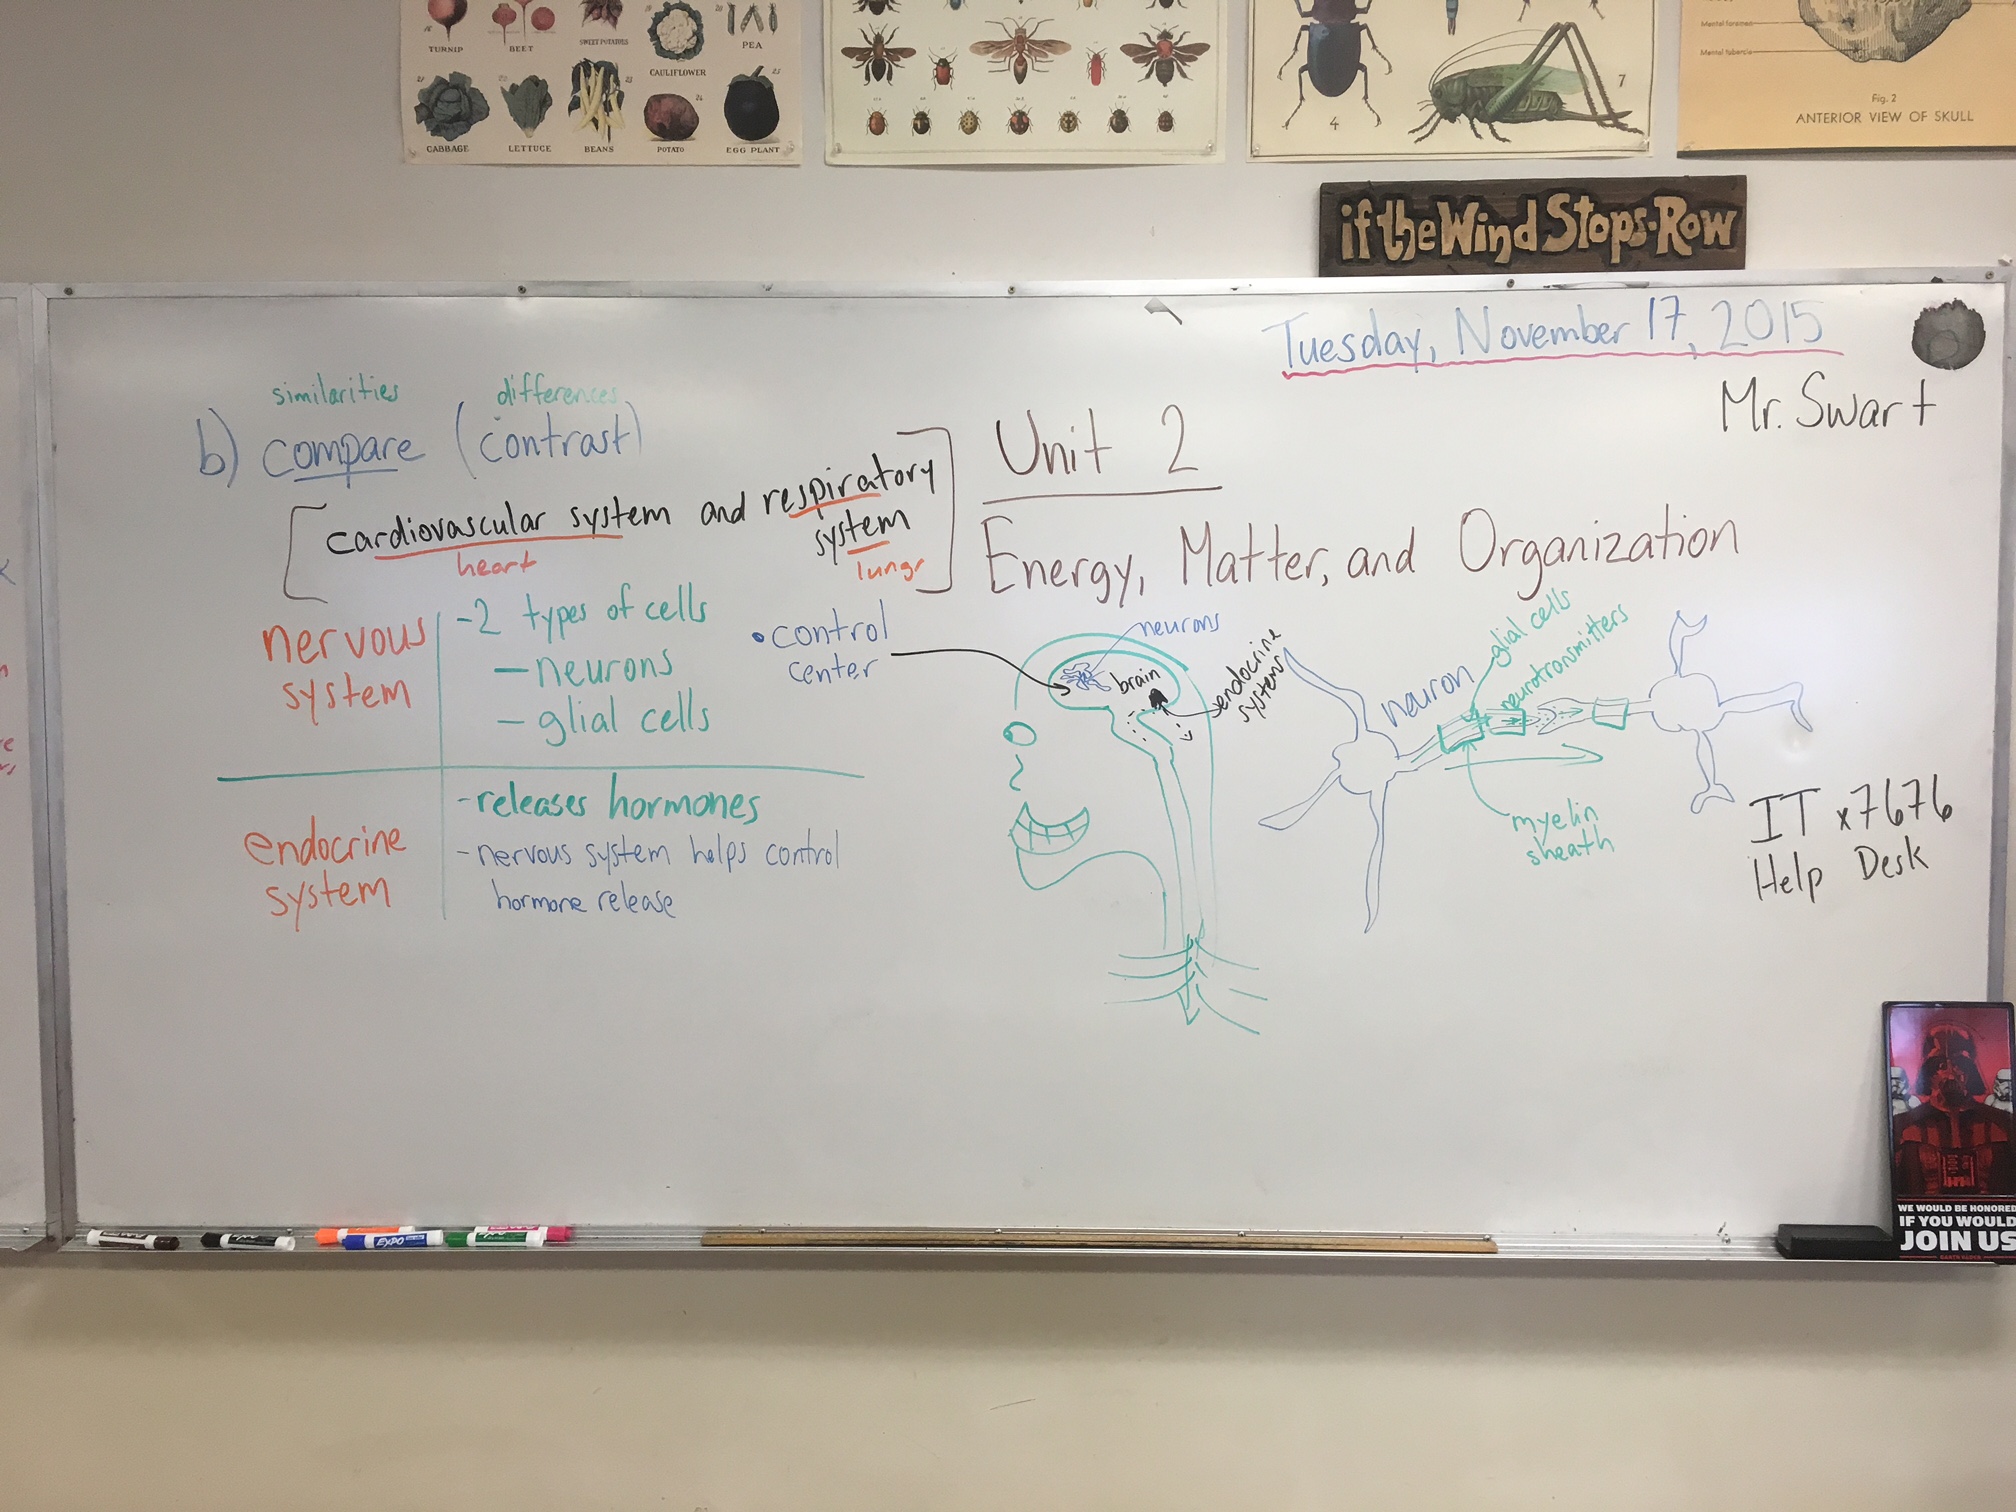 TURNIP
BEET
SWEET POTATOES
CAULIFLOWER
PEA
CABBAGE
LETTUCE
BEANS
POTATO
EGG PLANT
4
7
Mental foramen
Mental tubercle
Fig. 2
ANTERIOR VIEW OF SKULL
if the Wind Stops-Row
Tuesday, November 17, 2015
Mr. Swart
similarities differences
b) compare (contrast)
cardiovascular system and respiratory
system
heart
lungs
Unit 2
Energy, Matter, and Organization
nervous
system
-2 types of cells
- neurons
- glial cells
endocrine
system
-releases hormones
-nervous system helps control
hormone release
• control
center
neurons
brain
endocrine
system
neuron
glial cells
neurotransmitters
myelin
sheath
IT x7676
Help Desk
EXPO
WE WOULD BE HONORED
IF YOU WOULD
JOIN US
DARTH VADER